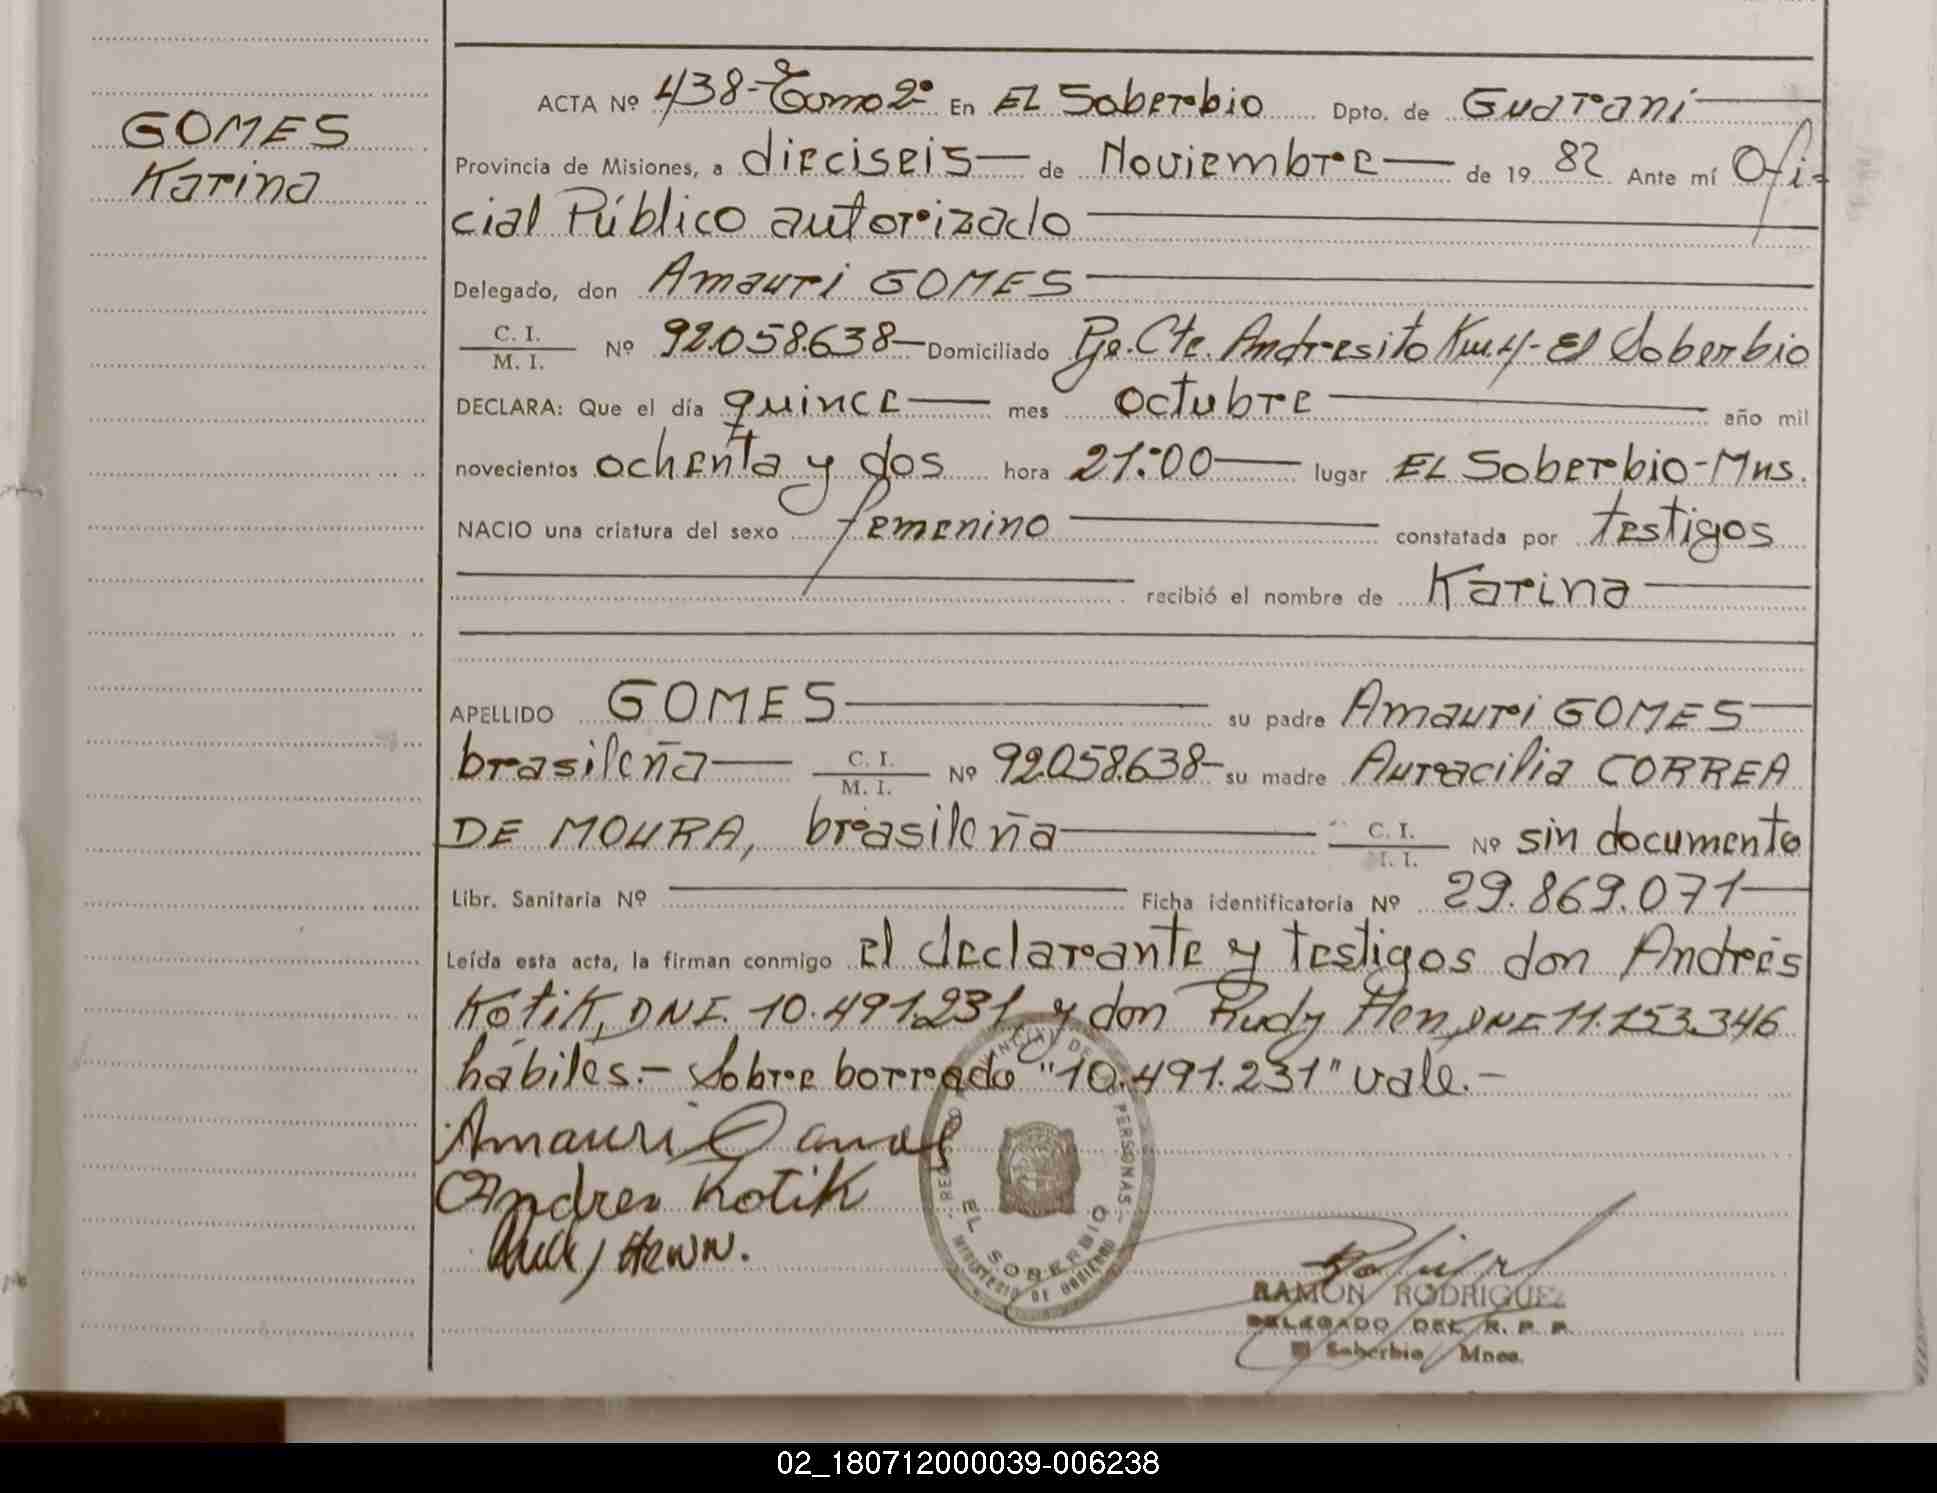 GOMES
Karina
ACTA Nº 438-Tomo 2º En EL Soberbio Dpto. de Guarani
Provincia de Misiones, a dieciseis de Noviembre de 19 82 Ante mí Ofi-
cial Público autorizado
Delegado, don Amauri GOMES
C. I.
M. I. Nº 92.058.638 Domiciliado Pje. Cte. Andresito Km. 4- El Soberbio
DECLARA: Que el día quince mes octubre año mil
novecientos ochenta y dos hora 21:00 lugar EL Soberbio-Mns.
NACIO una criatura del sexo femenino constatada por testigos
recibió el nombre de Karina
APELLIDO GOMES su padre Amauri GOMES
brasileña C. I.
M. I. Nº 92.058.638- su madre Auracilia CORREA
DE MOURA, brasileña C. I.
M. I. Nº sin documento
Libr. Sanitaria Nº Ficha identificatoria Nº 29.869.071
Leída esta acta, la firman conmigo el declarante y testigos don Andrés
Kotik, DNI. 10.491.231 y don Rudy Hen, DNI 11.153.346
hábiles.- Sobre borrado "10.491.231" vale.-
Amauri
Andres Kotik
REGISTRO PROVINCIAL DE LAS PERSONAS
EL SOBERBIO
MINISTERIO DE GOBIERNO
RAMON RODRIGUEZ
DELEGADO DEL R. P. P.
El Soberbio Mnes.
02_180712000039-006238